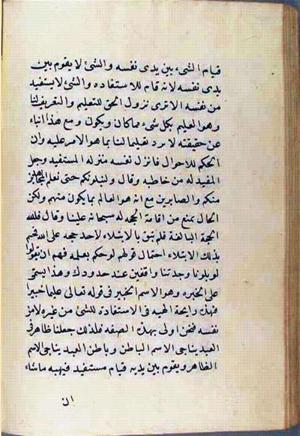 قيام الشيء بين يدى نفسه والشئ لا يقوم بين
يدى نفسه لانه قام للاستفاده والشئ لا يستفيد
من نفسه الا ترى نزول الحق للتعليم والتعريف لنا
وهو العليم بكل شيء مما كان ويكون ومع هذا انباء
عن حقيقته لا ترد تعليما لنا بما هو الامر عليه وان
الحكم للاحوال فانزل نفسه منزله المستفيد وجعل
المفيد له من خاطبه وقال ولنبلونكم حتى نعلم المجاهدين
منكم والصابرين مع انه هو العالم بما يكون منهم ولكن
الحال يمنع من اقامة الحجه له سبحانه علينا وقال فلله
الحجة البالغة فلم تبق بالابتلاء لاحد حجه على الله ختم
بذلك الابتلاء احتمال قولهم لو حكم بعلمه فهم ان يقولوا
لو بلونا وجدتنا واقفين عند حدودك وهذا يسمى
على الخبره وهو الاسم الخبير في قوله تعالى عليما خبيرا
وهذه رايحة الهيه في الاستفاده للشئ من غيره لا من
نفسه فنحن اولى بهذه الصفه فلذلك جعلنا ظاهر
العبد يناجى الاسم الباطن وباطن العبد يناجى الاسم
الظاهر ويقوم بين يديه قيام مستفيد فيهبه ماشاء
ان